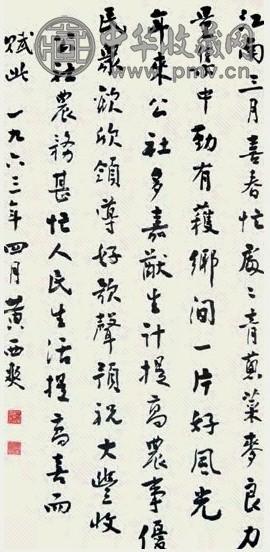 中华收藏网
www.pmw.cn
江南三月喜春忙處〻青蔥菜麥良力
量集中勤有穫鄉間一片好風光
年來公社多嘉猷生計提高農事優
民眾欢欣領導好歌聲預祝大豐收
江農務甚忙人民生活提高喜而
賦此 一九六三年四月黃西爽